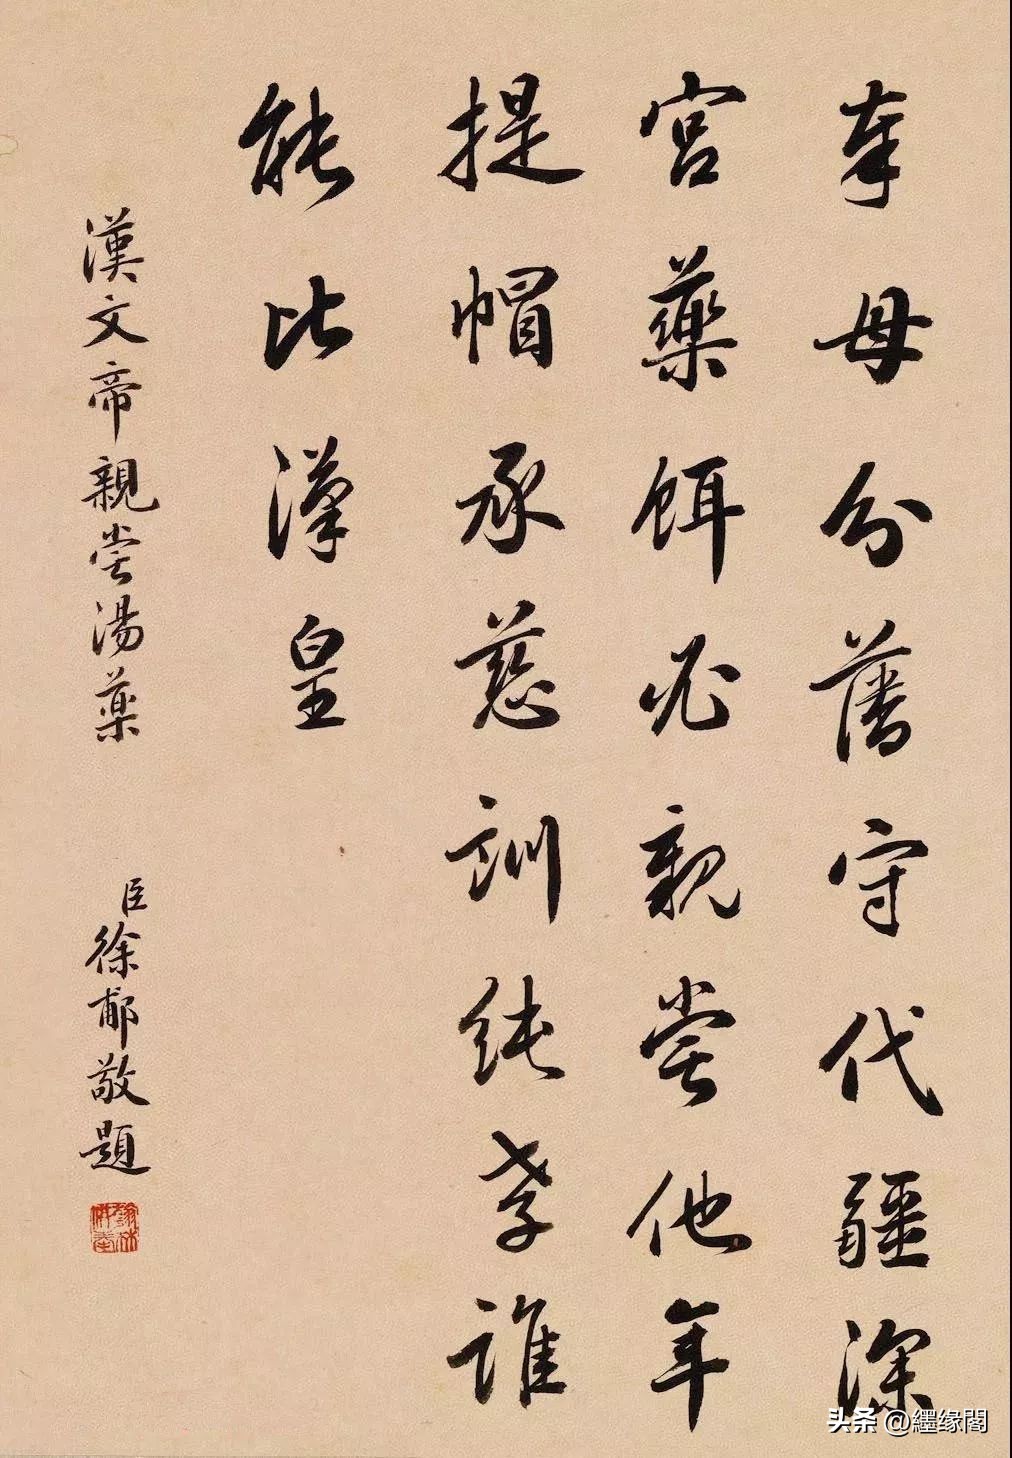 奉母分藩守代疆深
宮藥餌必親嘗他年
提帽承慈訓純孝誰
能比漢皇
漢文帝親嘗湯藥
臣徐郙敬題
头条 @纆缘阁